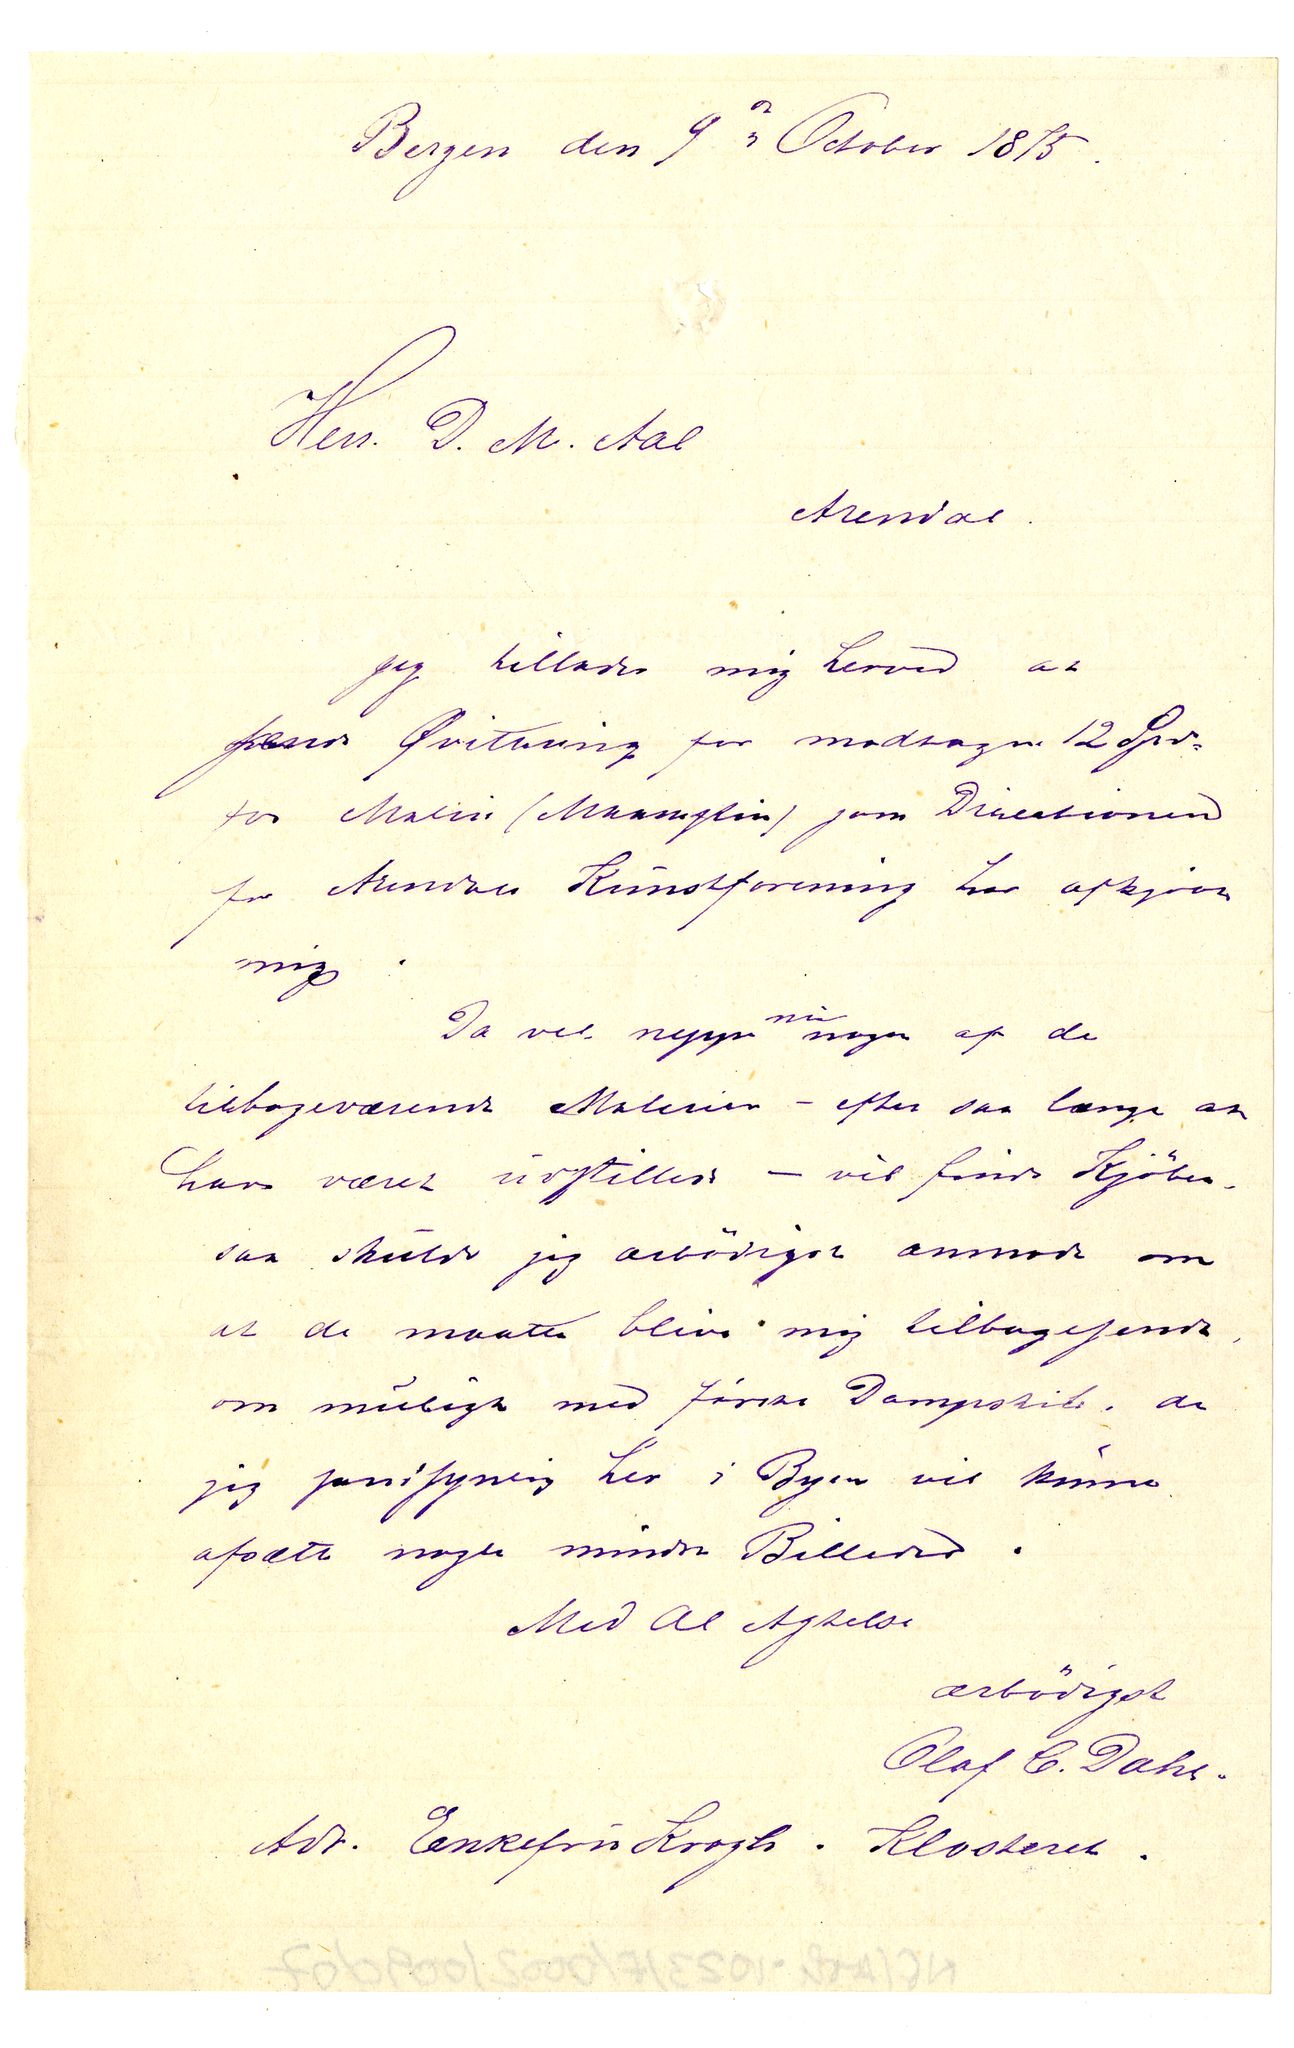 Bergen den 9de October 1875.
Herr. D. M. Aal
Arendal.
Jeg tillader mig herved at
sende Qvittering for modtagne 12 Spd.
for Maleri (Maaneskin) som Directionen
for Arendals Kunstforening har afkjøbt
mig.
Da vel neppe nu nogen af de
tilbageværende Malerier – efter saa længe at
have været udstillede – vil finde Kjöber,
saa skulde jeg ærbödigst anmode om
at de maatte blive mig tilbagesendt,
om muligt med første Dampskib, da
jeg sandsynlig her i Byen vil kunne
afsætte nogle mindre Billeder.
Med Al Agtelse
ærbödigst
Olaf C. Dahl.
Adr. Enkefru Krogh. Klosteret.
NE/Ark-1023/F/0002/0090/07